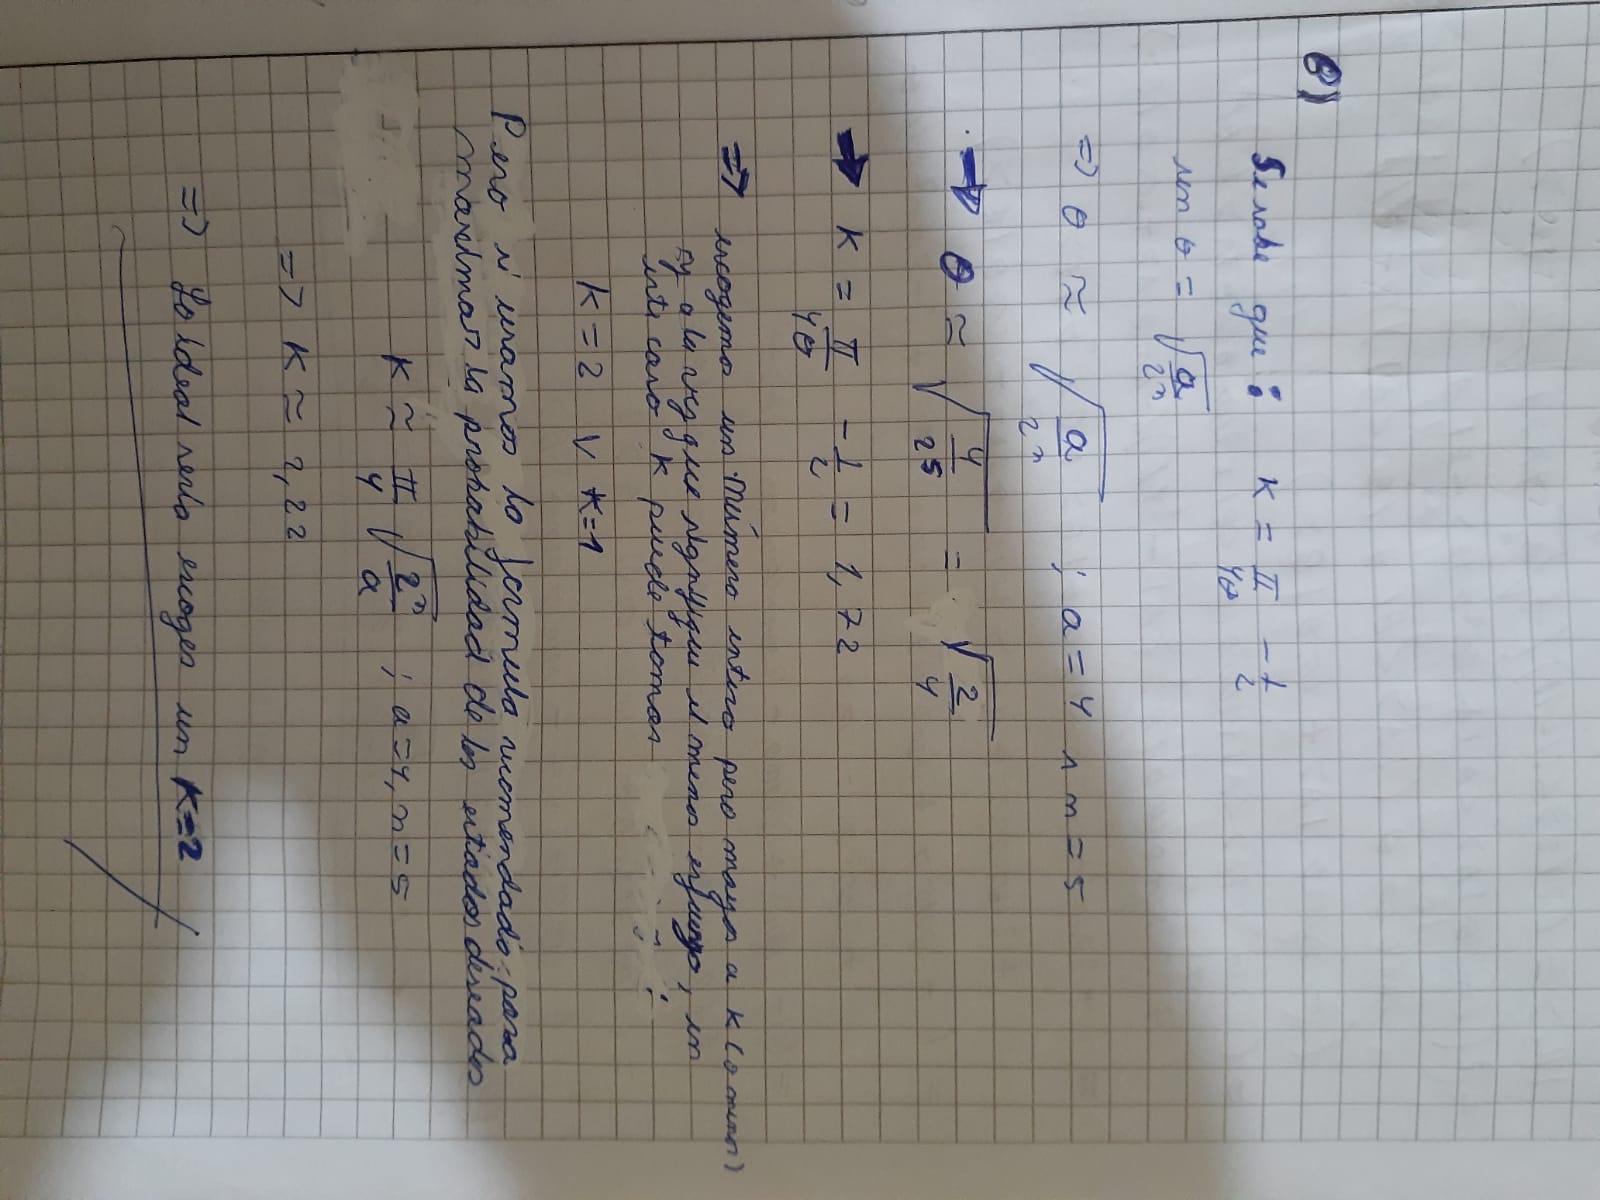 B)
Se sabe que: K = π/4θ - 1/2
sen θ = √(a/2^n)
=> θ ≈ √(a/2^n) ; a = 4 ∧ n = 5
→ θ ≈ √(4/2^5) = √(2/4)
→ K = π/4θ - 1/2 = 1,72
=> número entero pero mayor a K (o menor)
que el menor esfuerzo, en
este caso K puede tomar :
K = 2 ∨ K = 1
Pero si usamos la formula recomendada para
maximar la probabilidad de los estados deseados
K ≈ π/4 √(2^n/a) ; a = 4, n = 5
=> K ≈ 2,22
=> Lo ideal seria escoger un K = 2